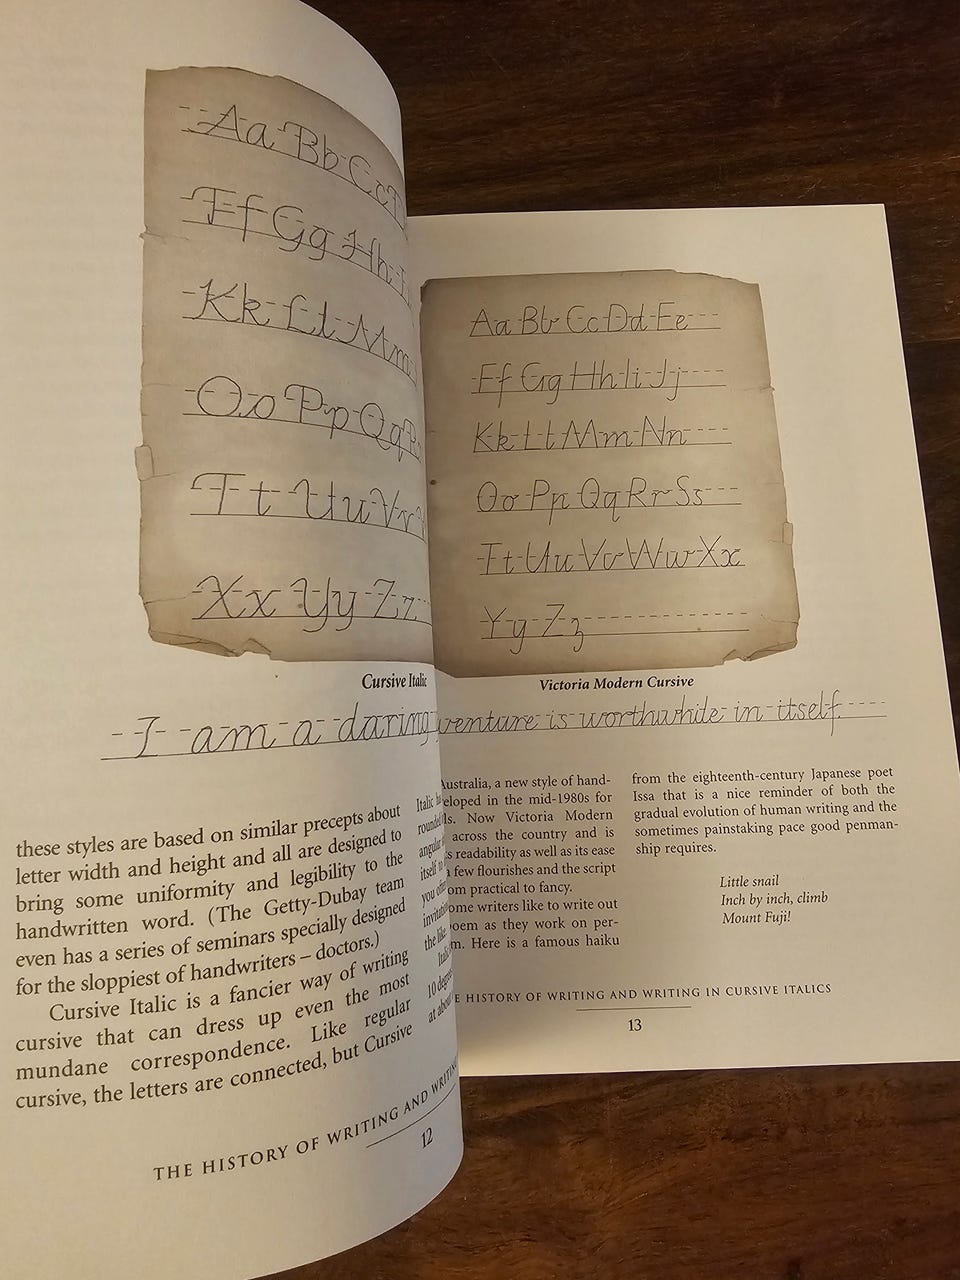 Aa Bb Cc
Ff Gg Hh
Kk Ll Mm
Oo Pp Qq
Tt Uu Vv
Xx Yy Zz
Cursive Italic
I am a daring
these styles are based on similar precepts about
letter width and height and all are designed to
bring some uniformity and legibility to the
handwritten word. (The Getty-Dubay team
even has a series of seminars specially designed
for the sloppiest of handwriters – doctors.)
Cursive Italic is a fancier way of writing
cursive that can dress up even the most
mundane correspondence. Like regular
cursive, the letters are connected, but Cursive
Italic
itself to
you
the like.
10 degrees
THE HISTORY OF WRITING AND WRITING
12
Aa Bb Cc Dd Ee
Ff Gg Hh Ii Jj
Kk Ll Mm Nn
Oo Pp Qq Rr Ss
Tt Uu Vv Ww Xx
Yy Zz
Victoria Modern Cursive
venture is worthwhile in itself.
Australia, a new style of hand-
eloped in the mid-1980s for
ls. Now Victoria Modern
across the country and is
s readability as well as its ease
a few flourishes and the script
om practical to fancy.
ome writers like to write out
poem as they work on per-
m. Here is a famous haiku
from the eighteenth-century Japanese poet
Issa that is a nice reminder of both the
gradual evolution of human writing and the
sometimes painstaking pace good penman-
ship requires.
Little snail
Inch by inch, climb
Mount Fuji!
E HISTORY OF WRITING AND WRITING IN CURSIVE ITALICS
13